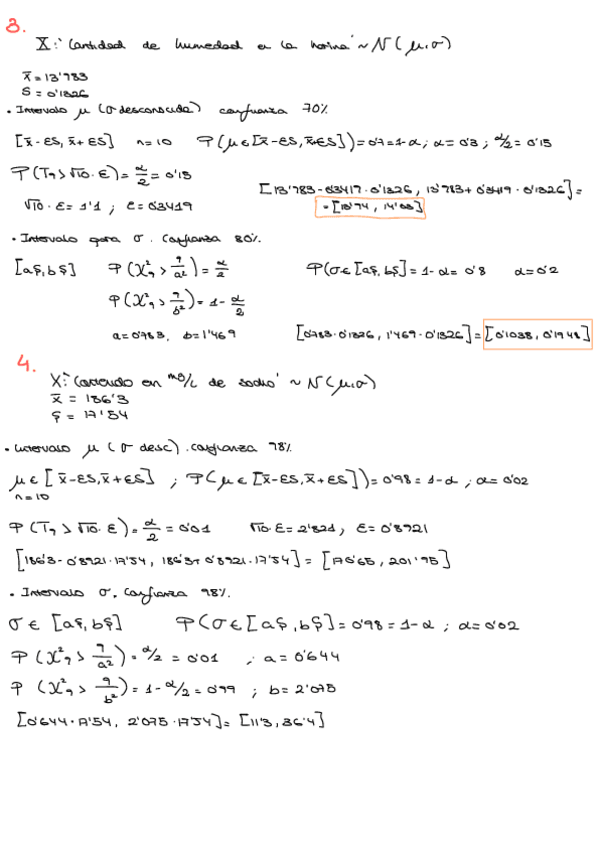 3.
X: "Cantidad de humedad en la harina" ~ N(μ,σ)
x̄ = 13'783
S = 0'1326
• Intervalo μ (σ desconocida) confianza 70%
[x̄-ES, x̄+ES] n=10 P(μ∈[x̄-ES, x̄+ES])=0'7=1-α; α=0'3; α/2=0'15
P(T₉>√10·E)=α/2=0'15
√10·E=1'1; E=0'3419
[13'783-0'3417·0'1326, 13'783+0'3419·0'1326]=
=[13'74, 14'03]
• Intervalo para σ. Confianza 80%.
[aS, bS] P(X²₉>9/a²)=α/2 P(σ∈[aS, bS]=1-α=0'8 α=0'2
P(X²₉>9/b²)=1-α/2
a=0'783, b=1'469 [0'783·0'1326, 1'469·0'1326]=[0'1038, 0'1948]
4.
X: "Contenido en mg/L de sodio" ~ N(μ,σ)
x̄ = 186'3
S = 17'54
• Intervalo μ (σ desc). confianza 98%
μ∈[x̄-ES, x̄+ES]; P(μ∈[x̄-ES, x̄+ES])=0'98=1-α; α=0'02
n=10
P(T₉>√10·E)=α/2=0'01 √10·E=2'821, E=0'8921
[186'3-0'8921·17'54, 186'3+0'8921·17'54]=[170'65, 201'95]
• Intervalo σ. Confianza 98%.
σ∈[aS, bS] P(σ∈[aS, bS]=0'98=1-α; α=0'02
P(X²₉>9/a²)=α/2=0'01; a=0'644
P(X²₉>9/b²)=1-α/2=0'99; b=2'075
[0'644·17'54, 2'075·17'54]=[11'3, 36'4]